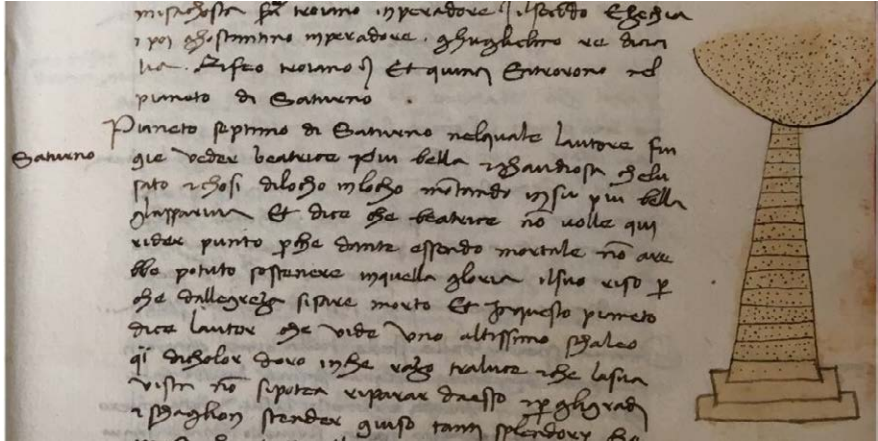 mischosta per troiano inperadore il secondo Ezechia
i poi ghostantino inperadore. ghuglielmo re dicici
lia. Rifeo troiano Et quinci Sitrovono nel
pianeto di Saturno.
Saturno
Pianeto septimo di Saturno nelquale lautore fin
gie veder beatrice piu bella & ghaudiosa chelu
sato & chosi dilocho inlocho montando insu piu bella
glapparina Et dice che beatrice nō volle qui
rider punto pche dante essendo mortale nō are
bbe potuto sostenere inquella gloria ilsuo riso p
che dallegreza sisare morto Et inquesto pianeto
dice lautor che vide uno altissimo schaleo
qi dicholor doro inche razo traluce & che lasua
vista nō sipotea riparar daesso & p gligradi
& schaglion scender quiso tanti splendori